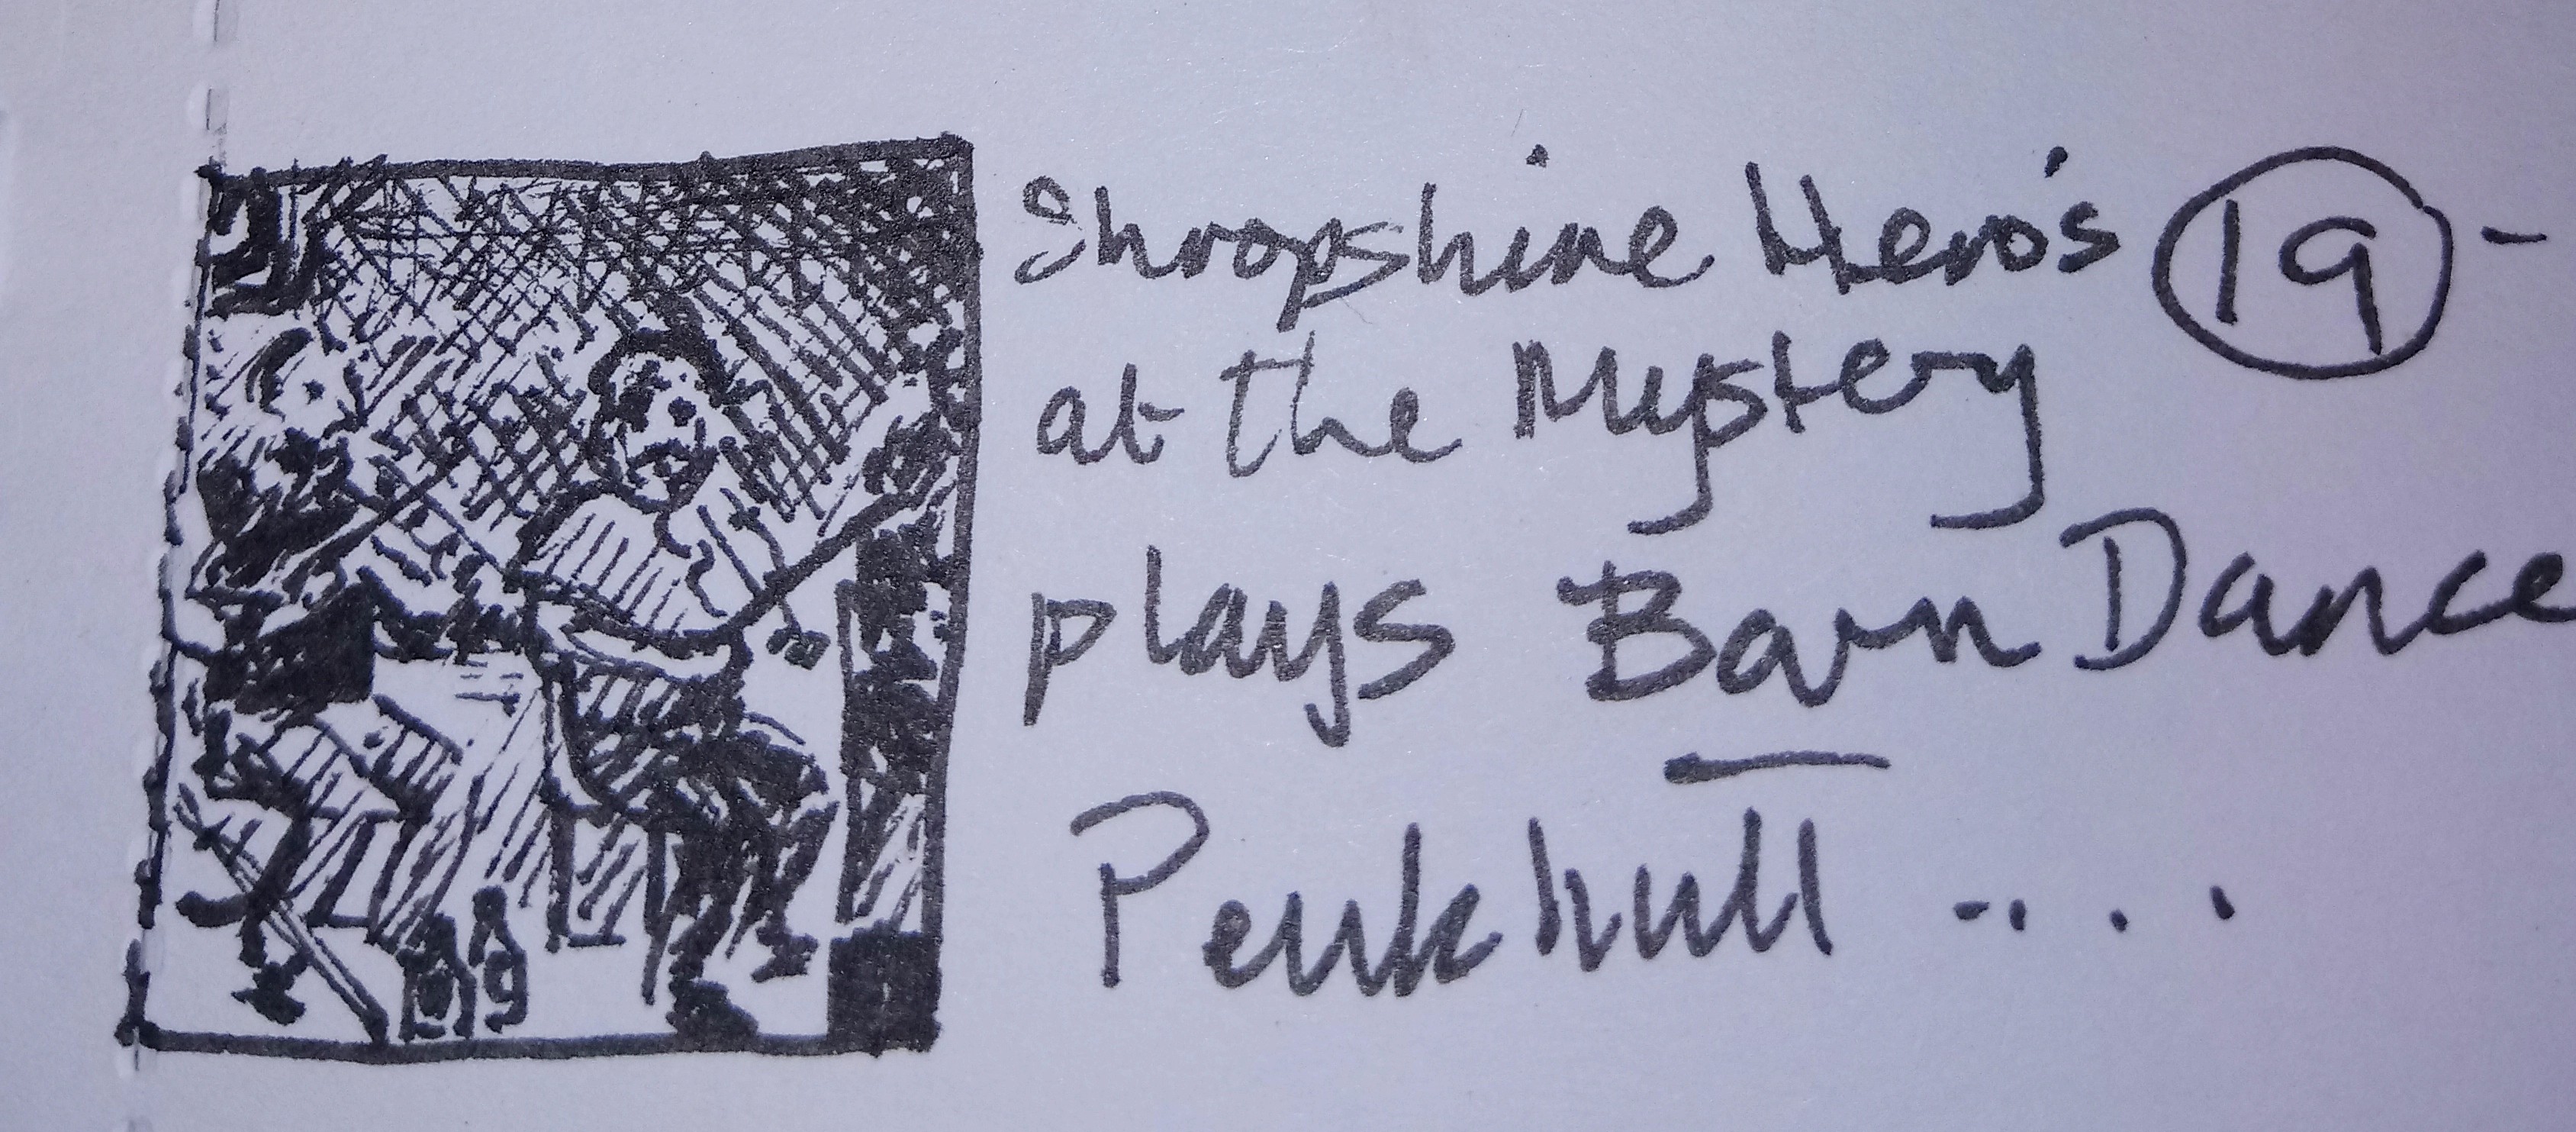 Shropshire Hero's 19 -
at the Mystery
plays Barn Dance
Penkhull ....